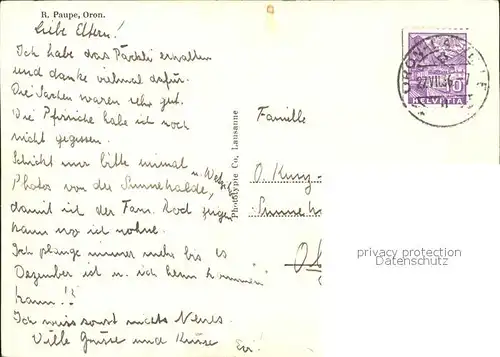 R. Paupe, Oron.
Liebe Eltern!
Ich habe das Päckli erhalten
und danke vielmal dafür.
Die Sachen waren sehr gut.
Die Pfirsiche habe ich noch
nicht gegessen.
Schickt mir bitte einmal
Photos von der Sunnehalde, u.
damit ich der Fam. Rod zeigen
kann wo ich wohne.
Ich plange immer mehr bis es
Dezember ist u. ich heim kommen
kann!!
Ich weiss sonst nichts Neues.
Viele Grüsse und Küsse
Evi!
Phototypie Co, Lausanne
ORON-LA-VILLE
27.VII.36
10
HELVETIA
Familie
O. Kunz-
Sunneha
privacy protection
Datenschutz